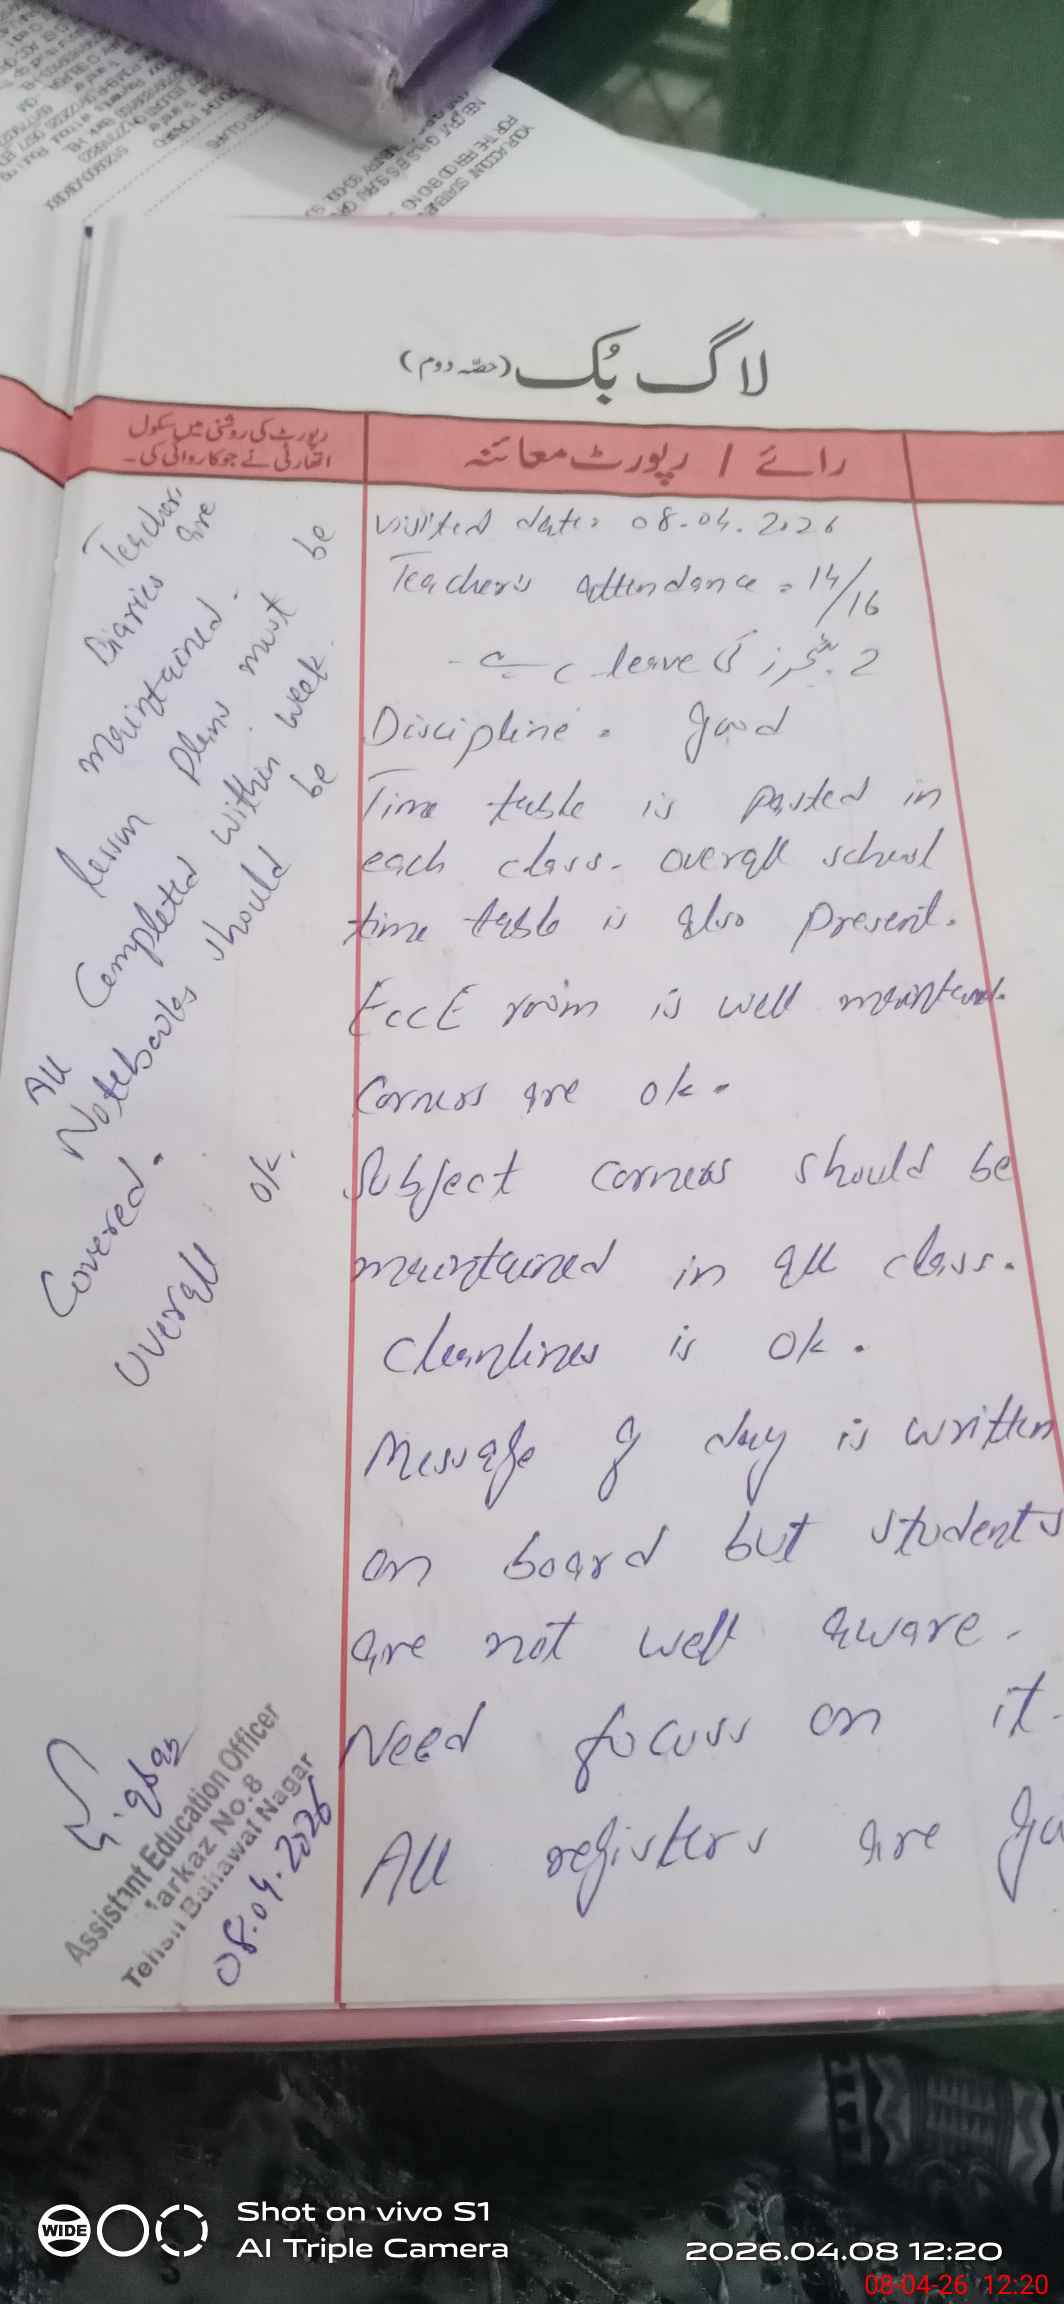 لاگ بُک (حصّہ دوم)
رپورٹ کی روشنی میں سکول
اتھارٹی نے جو کاروائی کی۔
رائے / رپورٹ معائنہ
visited date: 08.04.2026
Teacher's attendance = 14/16
2 ٹیچرز کی leave ہے -
Discipline = good
Time table is pasted in
each class. overall school
time table is also present.
EccE room is well maintained.
Corners are ok.
Subject corners should be
maintained in all class.
Cleanliness is ok.
Message of day is written
on board but students
are not well aware.
Need focuss on it.
All registers are
Teacher,
Diaries are
maintained.
lesson plans must be
Completed within week.
All
Notebooks should be
Covered.
overall ok.
Assistant Education Officer
Markaz No.8
Tehsil Bahawal Nagar
08.04.2026
WIDE
Shot on vivo S1
AI Triple Camera
2026.04.08 12:20
08-04-26 12:20